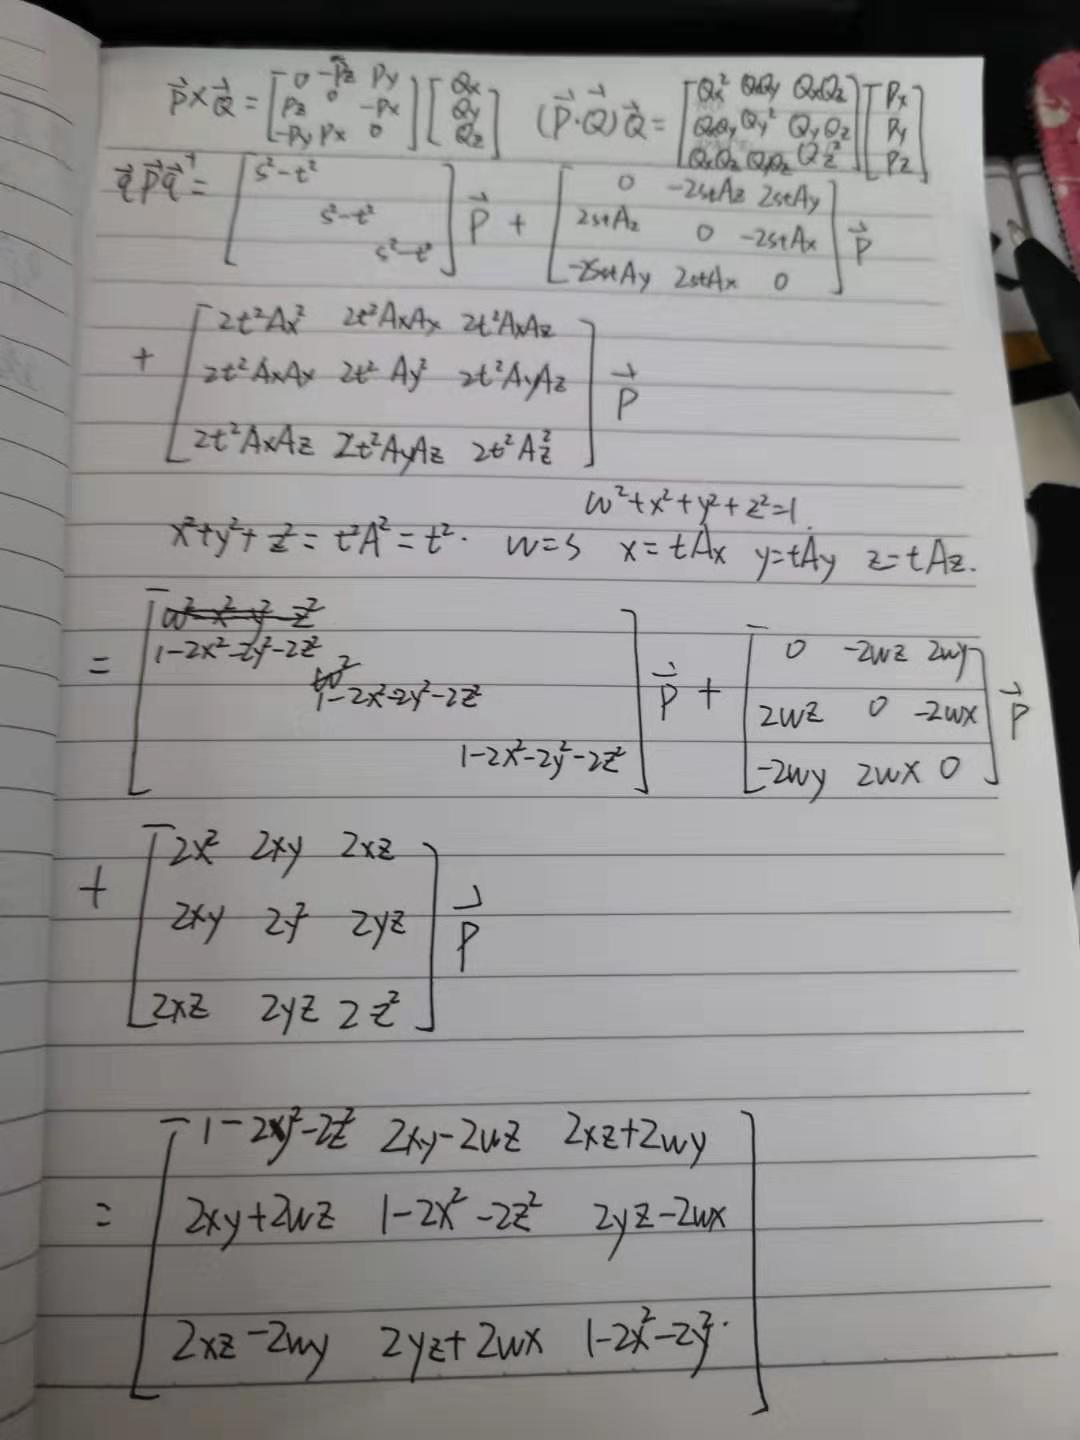 P⃗×Q⃗ = [0 -Pz Py; Pz 0 -Px; -Py Px 0] [Qx; Qy; Qz] (P⃗·Q⃗)Q⃗ = [Qx² QxQy QxQz; QxQy Qy² QyQz; QxQz QyQz Qz²] [Px; Py; Pz]
q⃗ p⃗ q⃗⁺ = [s²-t²; s²-t²; s²-t²] P⃗ + [0 -2stAz 2stAy; 2stAz 0 -2stAx; -2stAy 2stAx 0] P⃗
+ [2t²Ax² 2t²AxAy 2t²AxAz; 2t²AxAy 2t²Ay² 2t²AyAz; 2t²AxAz 2t²AyAz 2t²Az²] P⃗
w²+x²+y²+z²=1.
x²+y²+z² = t²A² = t². w=s x=tAx y=tAy z=tAz.
= [1-2x²-2y²-2z²; 1-2x²-2y²-2z²; 1-2x²-2y²-2z²] P⃗ + [0 -2wz 2wy; 2wz 0 -2wx; -2wy 2wx 0] P⃗
+ [2x² 2xy 2xz; 2xy 2y² 2yz; 2xz 2yz 2z²] P⃗
= [1-2y²-2z² 2xy-2wz 2xz+2wy; 2xy+2wz 1-2x²-2z² 2yz-2wx; 2xz-2wy 2yz+2wx 1-2x²-2y².]